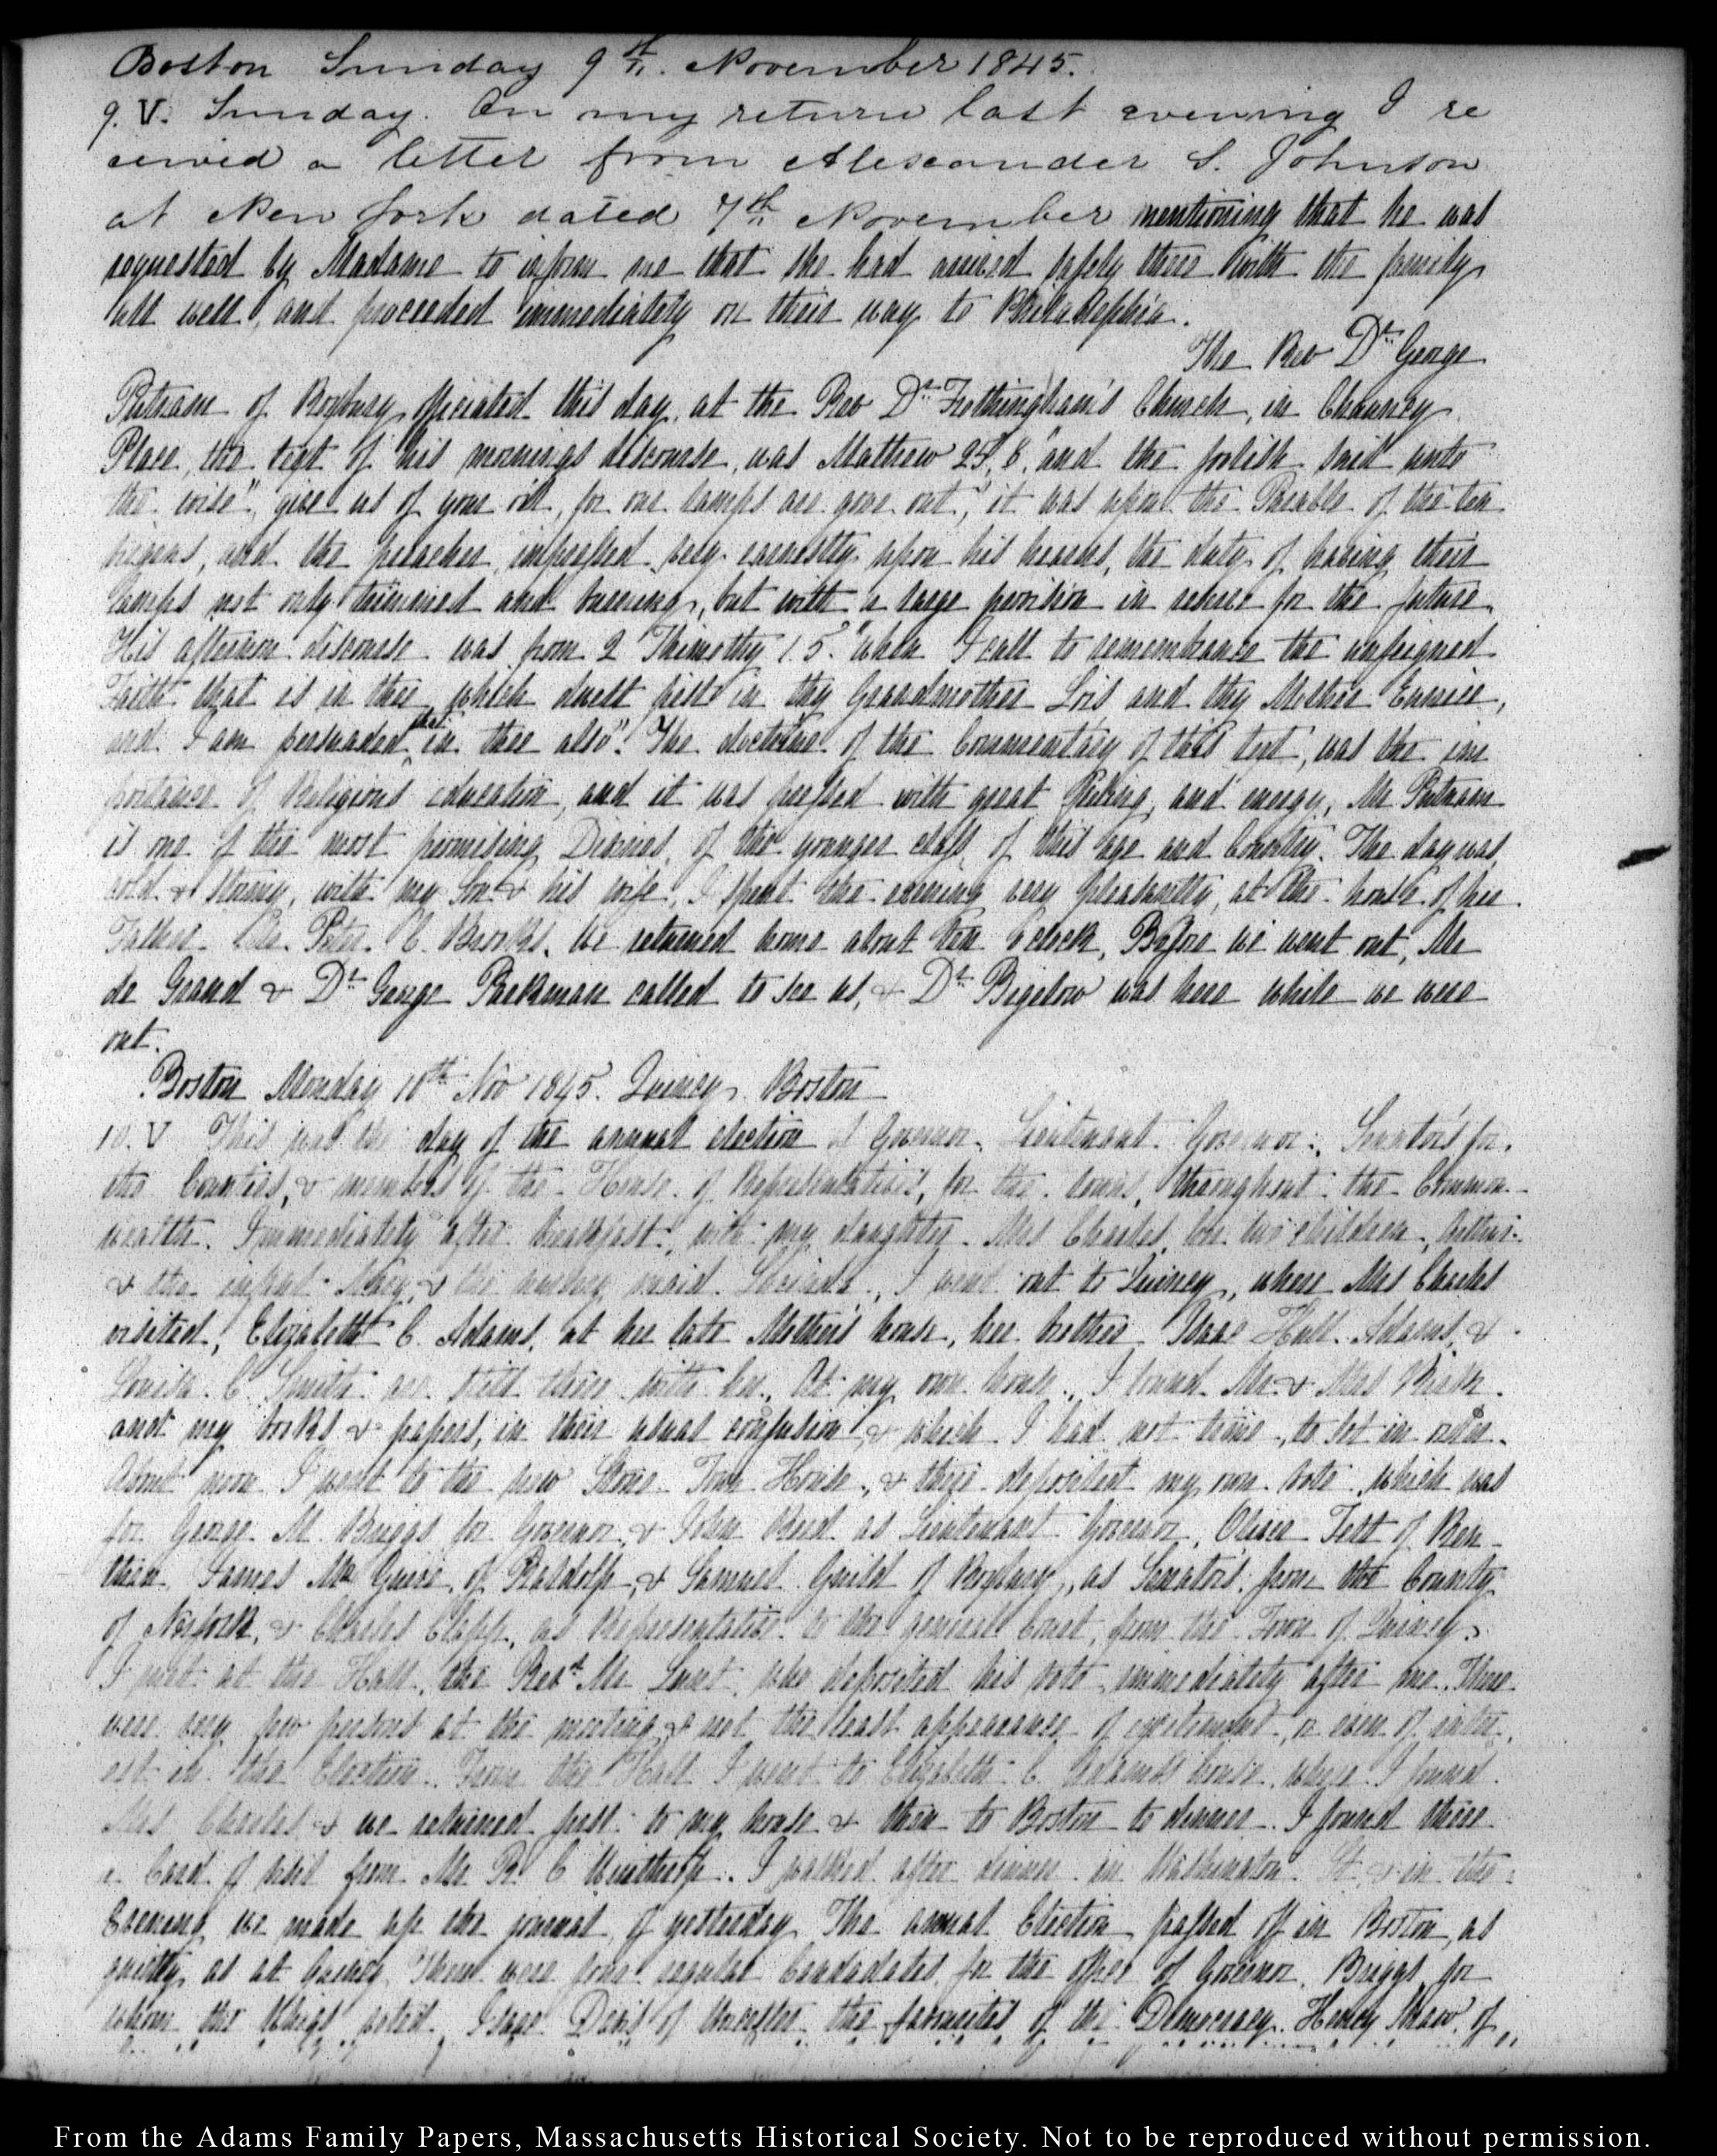 Boston Sunday 9th. November 1845.
9. V. Sunday. On my return last evening I re
ceived a letter from Alexander S. Johnson
at New York dated 7th November mentioning that he was
requested by Madame to inform me that she had arrived safely there with the family
all well, and proceeded immediately on their way to Philadelphia.
The Rev Dr. George
Putnam of Roxbury officiated this day, at the Rev Dr. Frothingham's Church, in Chauncy
Place, the text of his mornings discourse, was Mathew 25, 8. "and the foolish said unto
the wise", give us of your oil, for our lamps are gone out", it was upon the Parable of the ten
virgins, and the preacher impressed very earnestly upon his hearers, the duty of having their
lamps not only trimmed and burning, but with a large provision in reserve for the future.
His afternoon discourse was from 2 Thimothy 1. 5. "when I call to remembrance the unfeigned
Faith that is in thee, which dwelt first in thy Grandmother Lois and thy Mother Eunice,
and I am persuaded that in thee also". The doctrine of the Commentary of this text, was the im
portance of Religious education, and it was pressed with great feeling, and energy, Mr Putnam
is one of the most promising Divines, of the younger class, of this age and Country. The day was,
cold & stormy, with my Son & his wife, I spent the evening very pleasantly, at the house of her
Father Mr. Peter C. Brooks. We returned home about ten o'clock, Before we went out, Mr
de Grand & Dr. George Parkman called to see us, & Dr. Bigelow was here while we were
out.
Boston Monday 10th Nov 1845. Quincy Boston
10. V This was the day of the annual election of Governor, Lieutenant Governor, Senators for
the Counties, & members of the House of Representatives, for the towns, throughout the Common-
wealth. Immediately after breakfast, with my daughter Mrs Charles, her two children, Arthur
& the infant Mary, & the nursery maid, I went out to Quincy, where Mrs Charles
visited, Elizabeth C. Adams, at her late Mother's house, her brother Isaac Hull Adams, &
Louisa C. Smith are still there with her. At my own house, I found Mr & Mrs
and my books & papers, in their usual confusion, & which I had not time, to set in order.
About noon I went to the new Stone Town House, & there deposited my own vote, which was
for George N. Briggs for Governor, & John Reed as Lieutenant Governor, Oliver Felt of Ren-
tham James Mc Guire, of Raldolph, & Samuel Guild of Roxbury, as Senators from the County
of Norfolk, & Charles Clapp, as Representative to the general Court, from the Town of Quincy.
I met at the Hall, the Revd. Mr Lunt, who deposited his vote immediately after me. There
were very few persons at the meeting, & not the least appearance of excitement, or even of inter-
est in the Election. From the Hall I went to Elizabeth C. Adams's house, where I found
Mrs Charles, & we returned first to my house & then to Boston to dinner. I found there
a Card of visit from Mr R. C Winthrop. I walked after dinner in Washington St. & in the
Evening we made up the journal of yesterday. The annual Election passed off in Boston, as
quietly, as at Quincy. There were four regular Candidates for the office of Governor. Briggs for
whom the Whigs voted. Isaac Davis of Worcester the favourites of the Democracy. Henry Shaw of
From the Adams Family Papers, Massachusetts Historical Society. Not to be reproduced without permission.